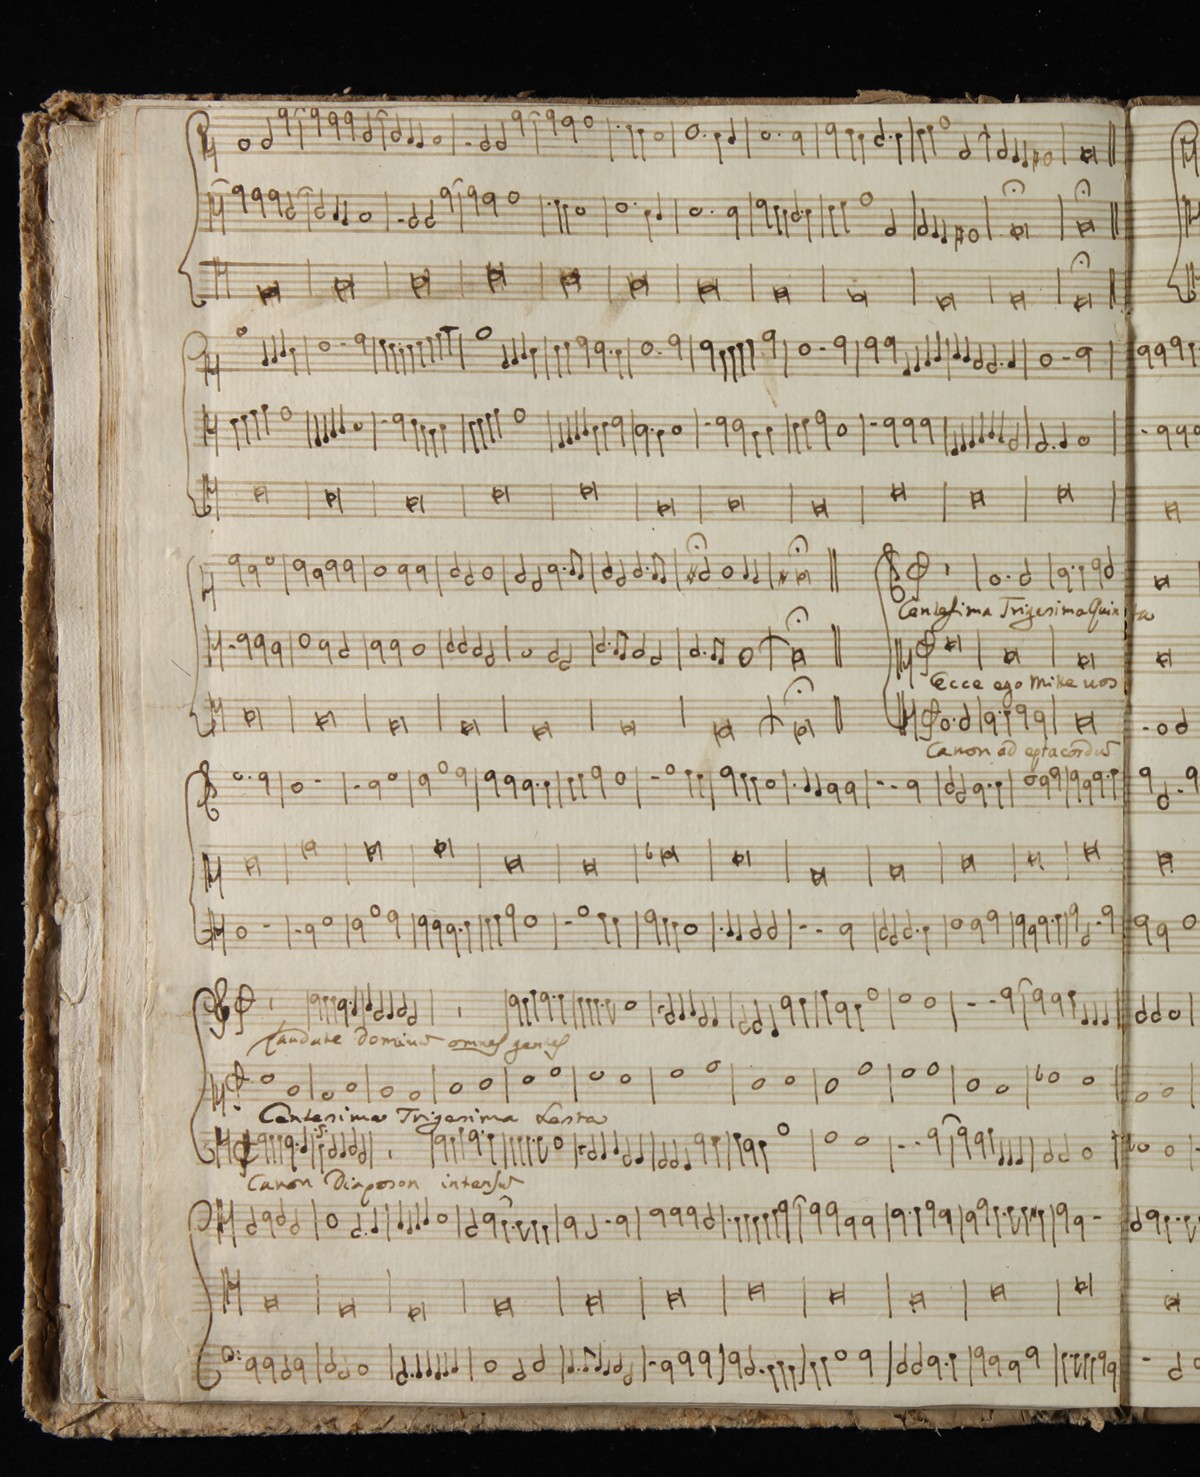 Centesima Trigesima Quinta
Ecce ego mitto vos
Canon ad eptacordũ
Laudate Dominũ omnes gentes
Centesima Trigesima Sesta
Canon Diapason intensũ